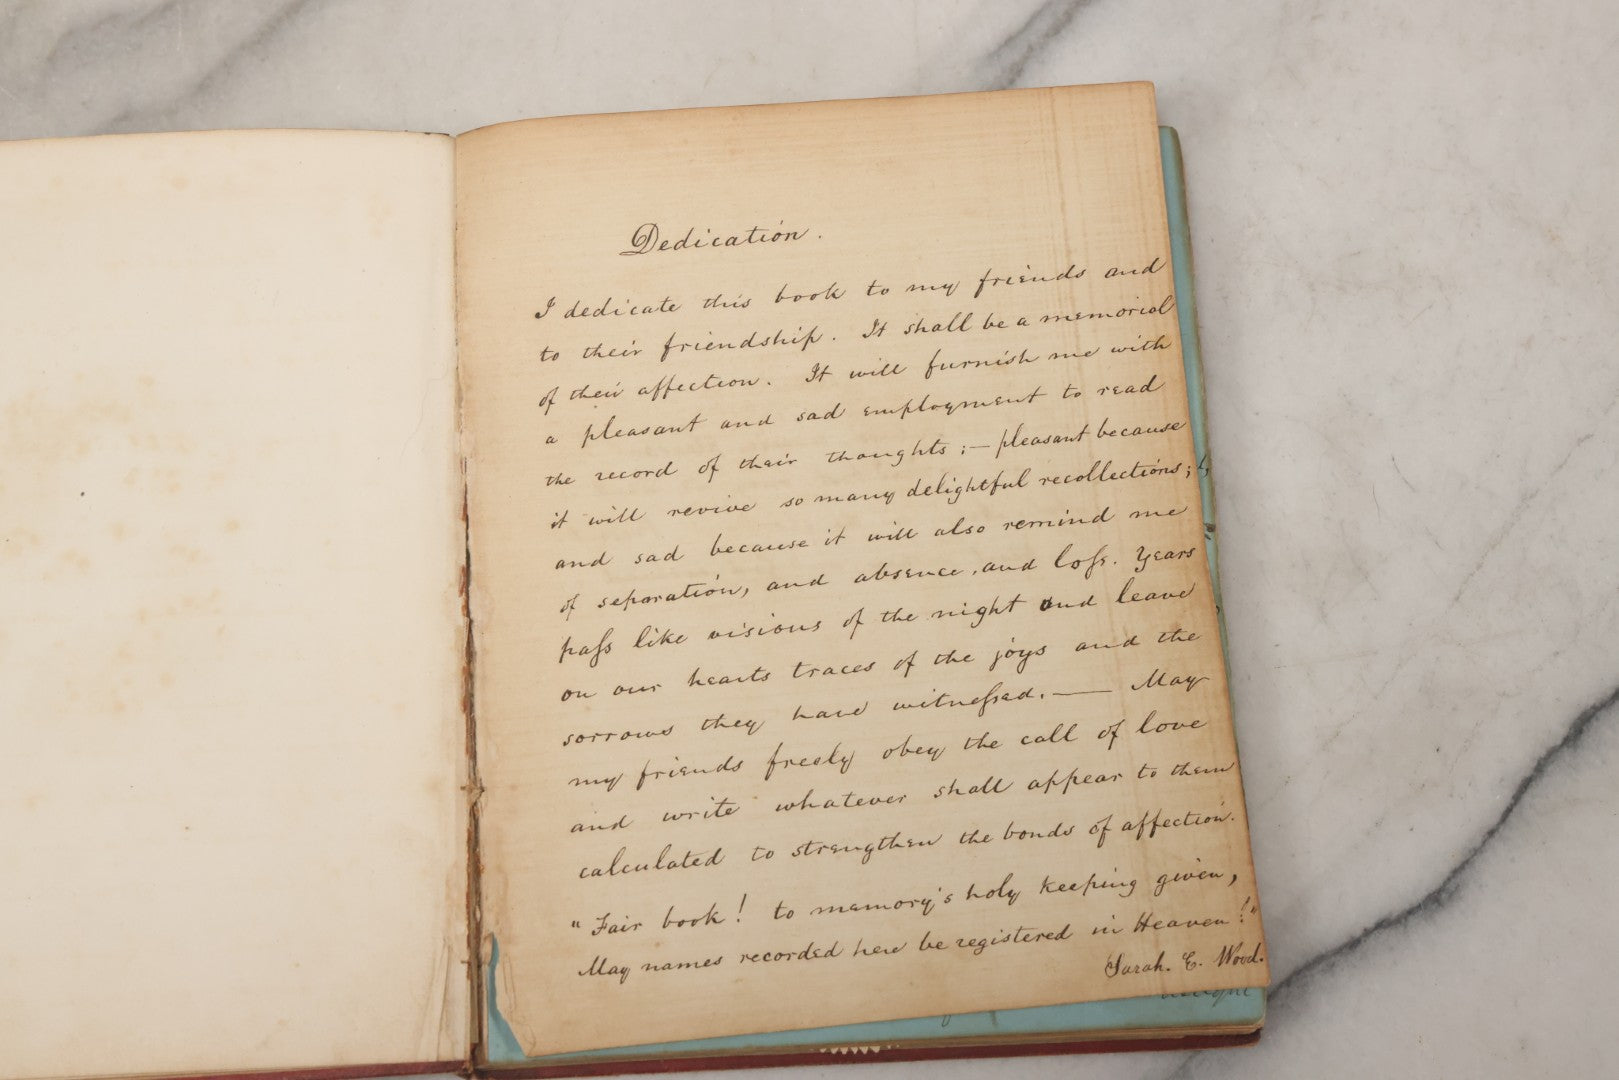 Dedication.
I dedicate this book to my friends and
to their friendship. It shall be a memorial
of their affection. It will furnish me with
a pleasant and sad employment to read
the record of their thoughts ;— pleasant because
it will revive so many delightful recollections;
and sad because it will also remind me
of separation, and absence, and loſs. Years
paſs like visions of the night and leave
on our hearts traces of the joys and the
sorrows they have witneſsed. — May
my friends freely obey the call of love
and write whatever shall appear to them
calculated to strengthen the bonds of affection.
"Fair book! to memory's holy keeping given,
May names recorded here be registered in Heaven!"
Sarah. E. Wood.